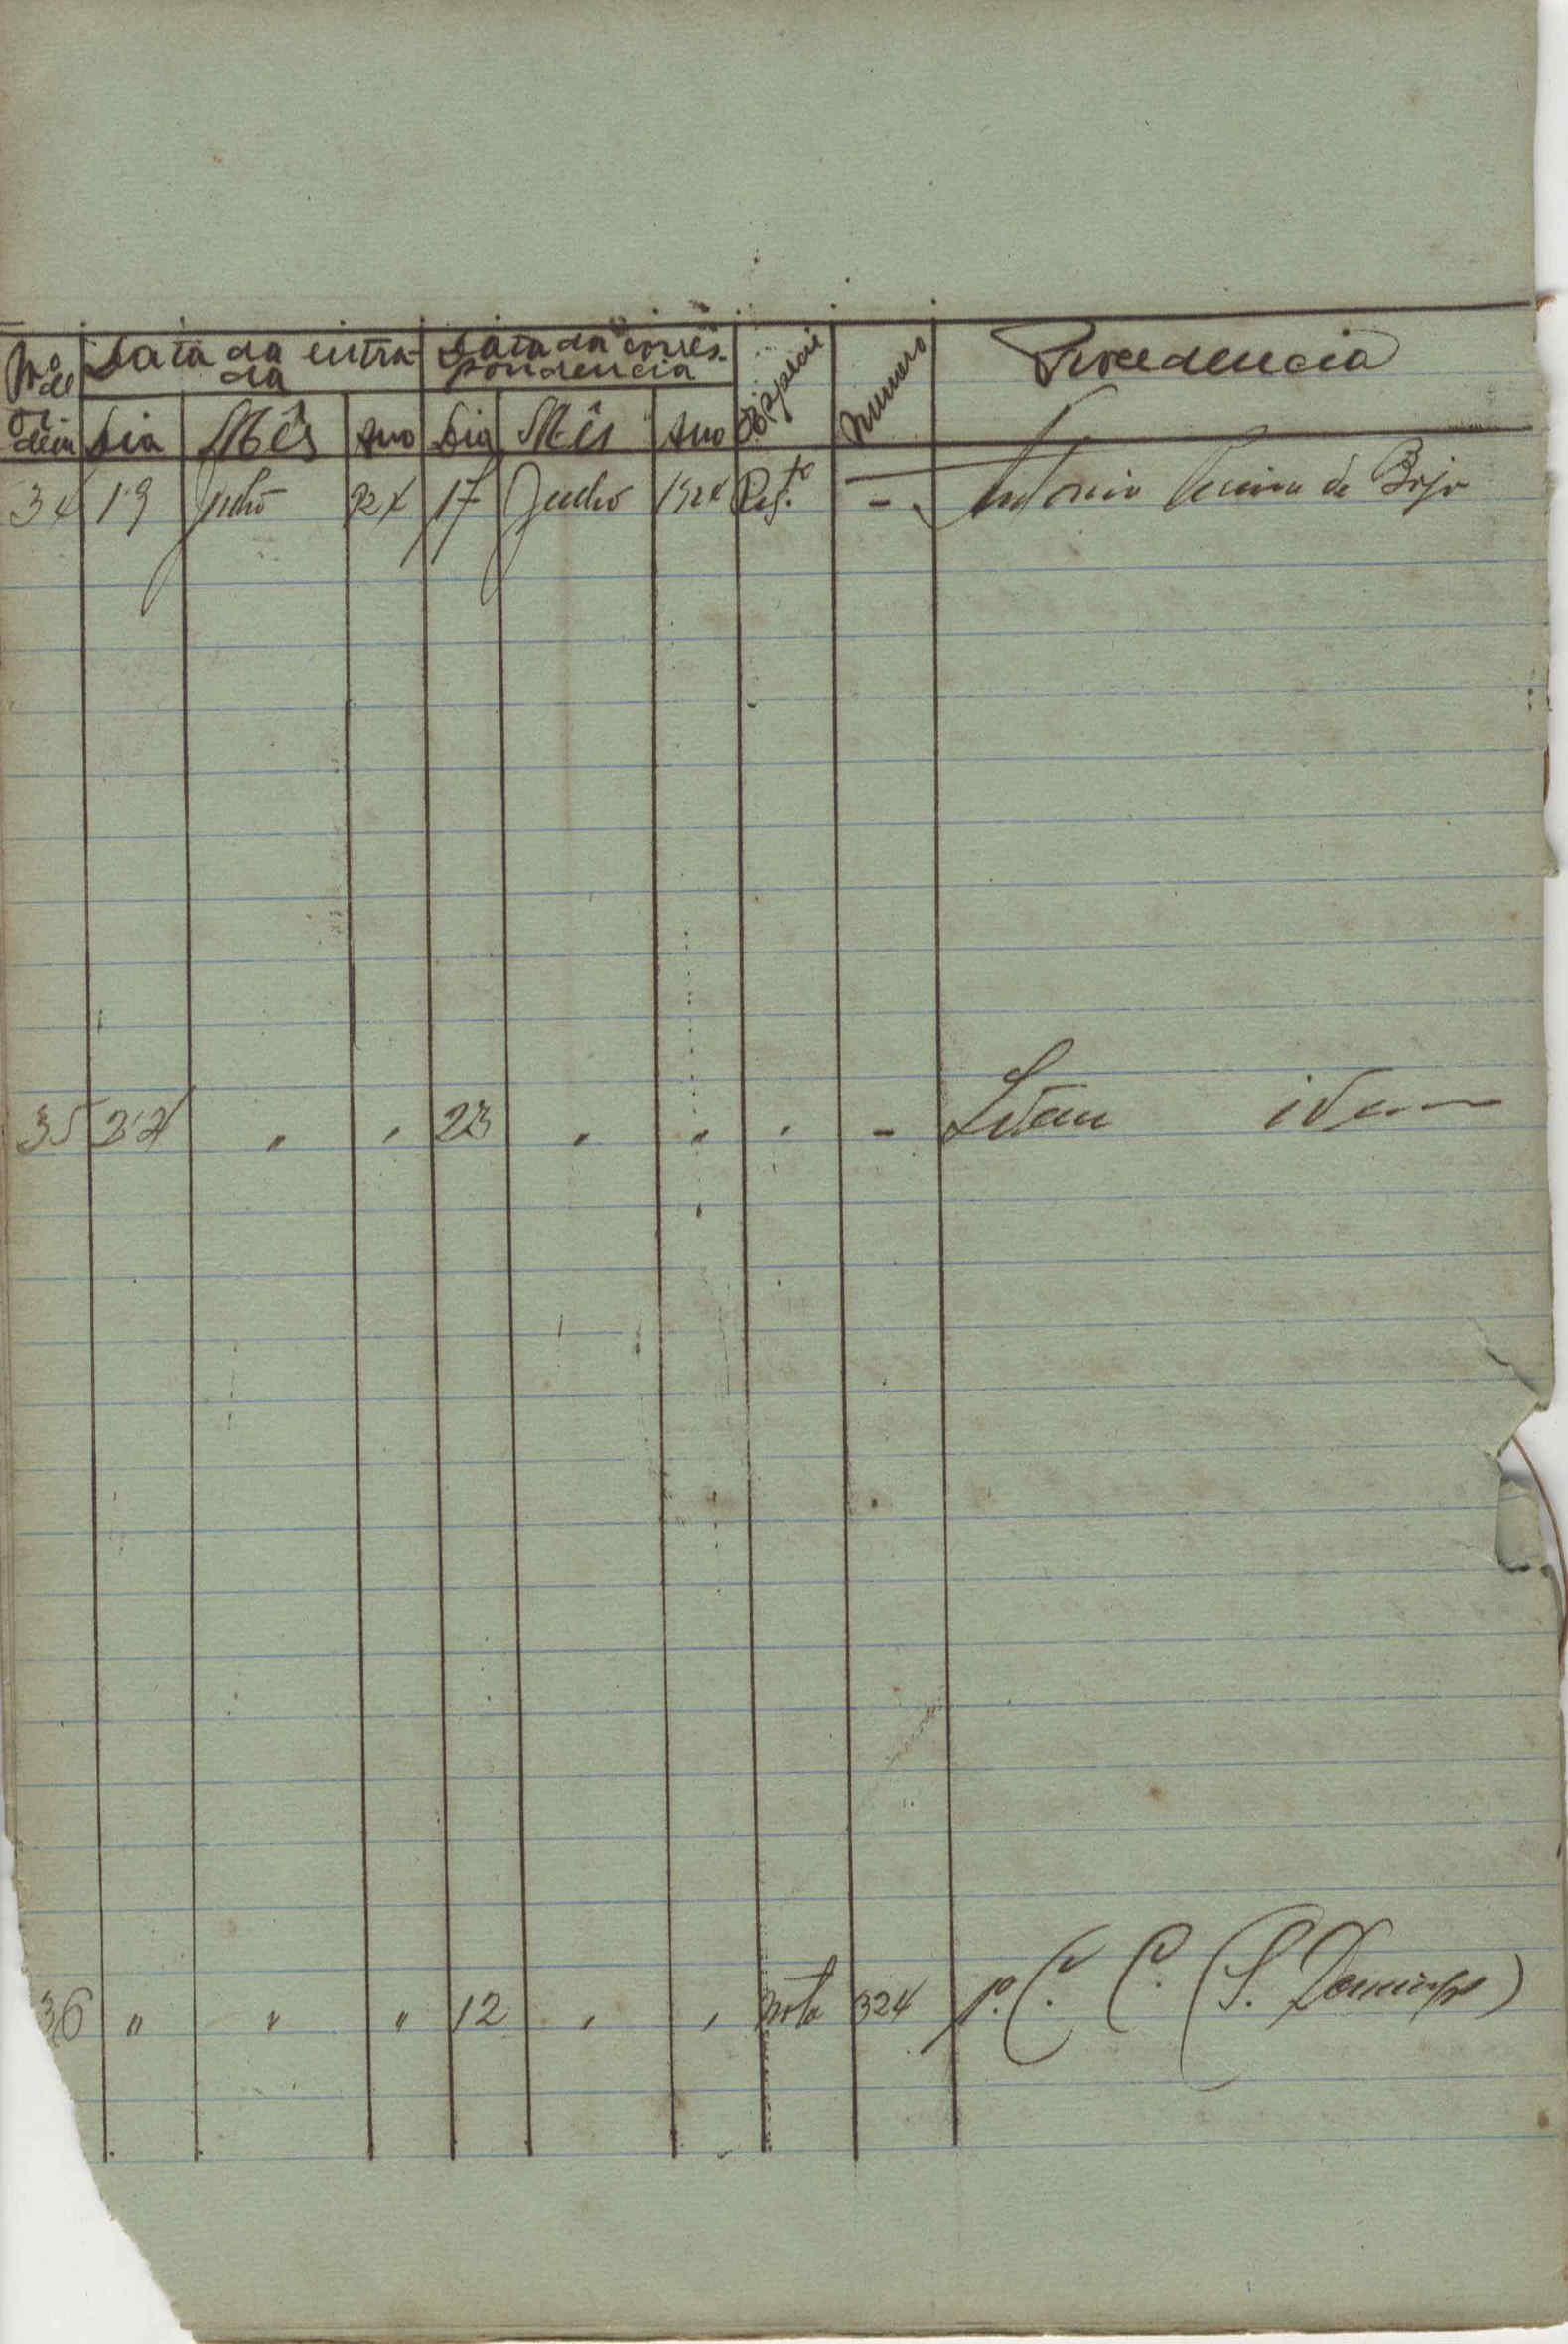 Nº de ordem Data da entrada Data da corres-pondencia Especie Numero Procedencia
Dia Mês Ano Dia Mês Ano
34 19 Julho 924 17 Julho 1924 Reg.to - Antonio de Bojo
35 24 " " 23 " " " - Idem idem
36 " " " 12 " " Nota 324 P. C. C. (S. Domingos)